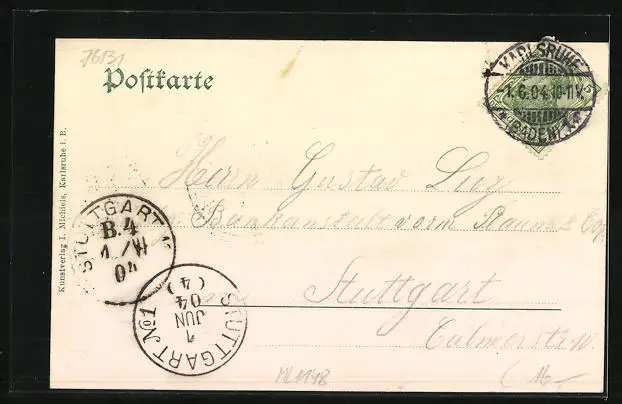 76131
Postkarte
KARLSRUHE
1.6.04.10-11V.
(BADEN)
Herrn Gustav
Bankanstalt vorm
Stuttgart
STUTTGART
B.4
04
STUTTGART No1
1
JUN
04
(4)
Kunstverlag I. Michiels, Karlsruhe i. B.